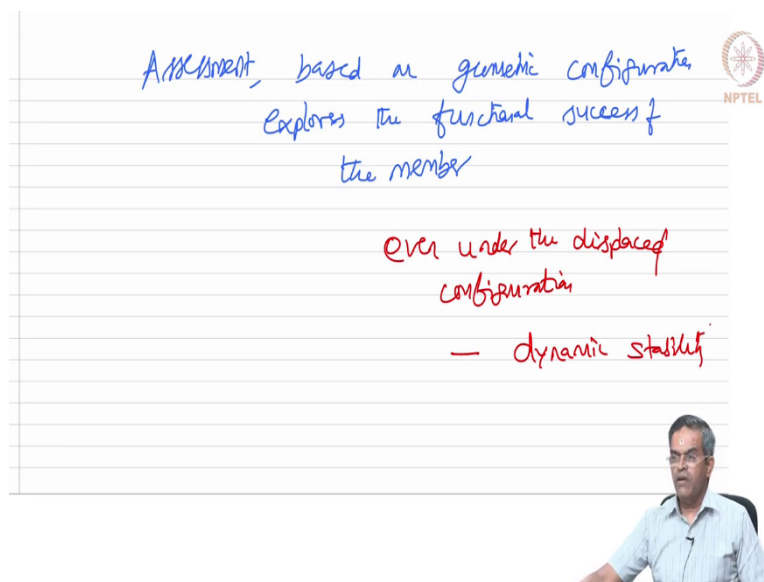 Assessment, based on geometric configuration
NPTEL
explores the functional success of
the member
even under the displaced
configuration
— dynamic stability